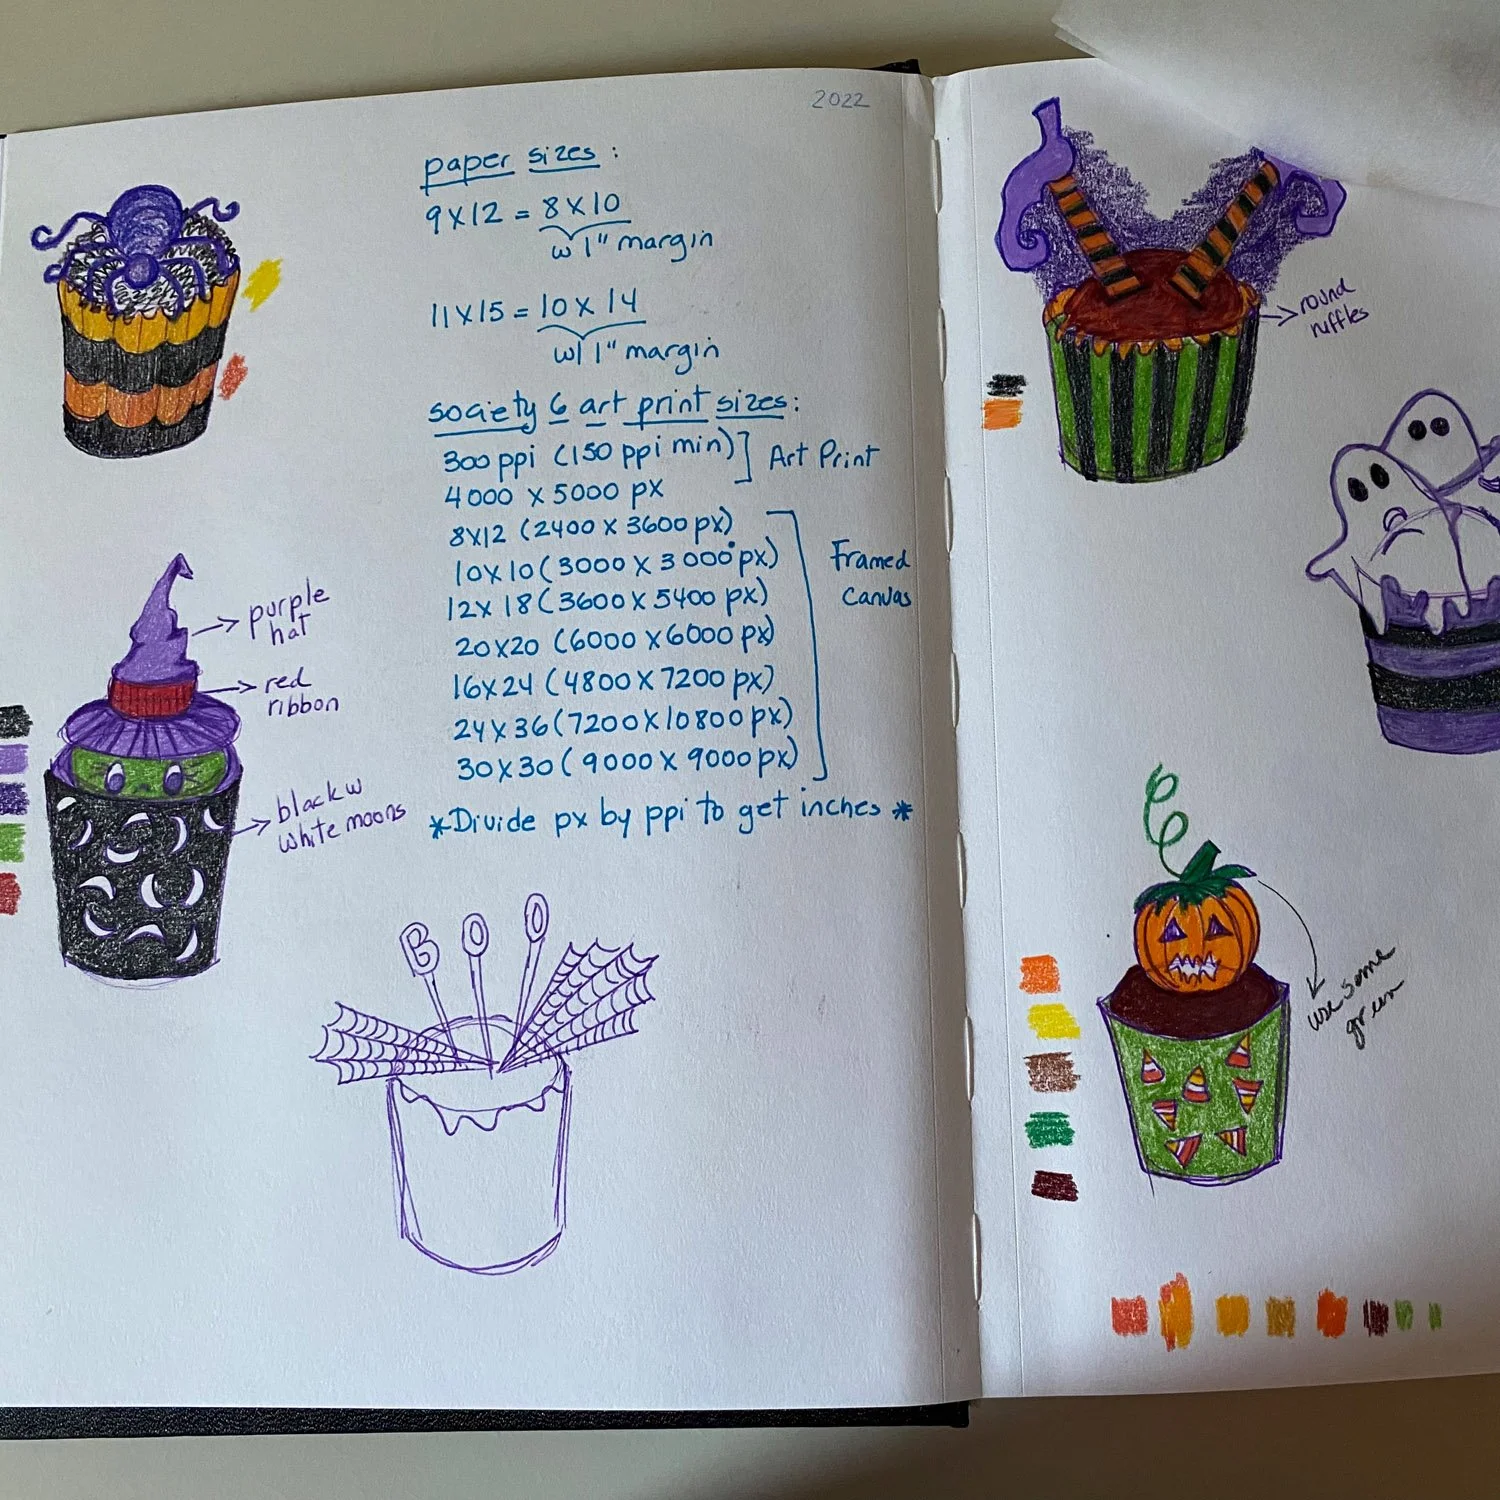 2022
paper sizes :
9X12 = 8X10
w 1" margin
11X15 = 10X14
w/ 1" margin
society 6 art print sizes:
300 ppi (150 ppi min)
4000 X 5000 px
Art Print
8X12 (2400 X 3600 px)
10X10 (3000 X 3000 px)
12X18 (3600 X 5400 px)
20X20 (6000 X 6000 px)
16X24 (4800 X 7200 px)
24X36 (7200 X 10800 px)
30X30 (9000 X 9000 px)
Framed
Canvas
*Divide px by ppi to get inches*
purple
hat
red
ribbon
black w
white moons
BOO
round
ruffles
use some
green